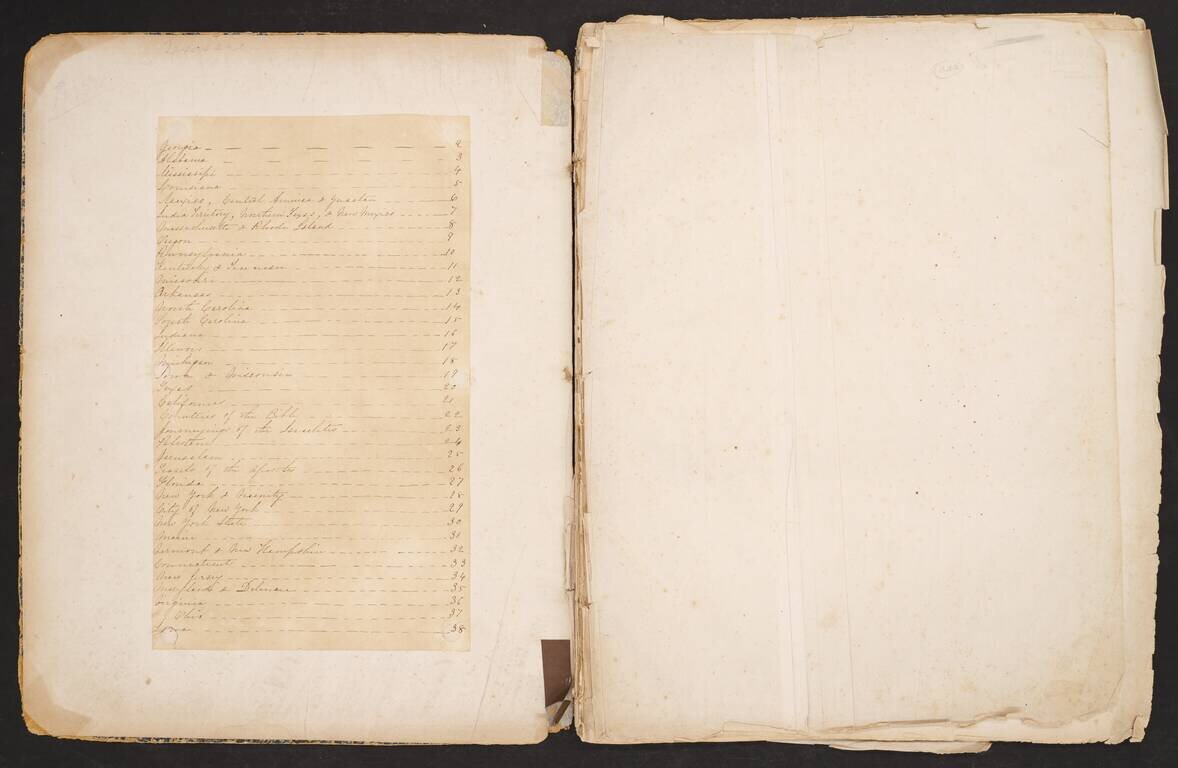 Georgia 2
Alabama 3
Mississippi 4
Louisiana 5
Mexico, Central America & Yucatan 6
India Territory, Northern Texas, & New Mexico 7
Massachusetts & Rhode Island 8
Oregon 9
Pennsylvania 10
Kentucky & Tennessee 11
Missouri 12
Arkansas 13
North Carolina 14
South Carolina 15
Indiana 16
Illinois 17
Michigan 18
Iowa & Wisconsin 19
Texas 20
California 21
Countries of the Bible 22
Journeyings of the Israelites 23
Palestine 24
Jerusalem 25
Travels of the Apostles 26
Florida 27
New York & Vicinity 28
City of New York 29
New York State 30
Maine 31
Vermont & New Hampshire 32
Connecticut 33
New Jersey 34
Maryland & Delaware 35
Virginia 36
Ohio 37
Iowa 38